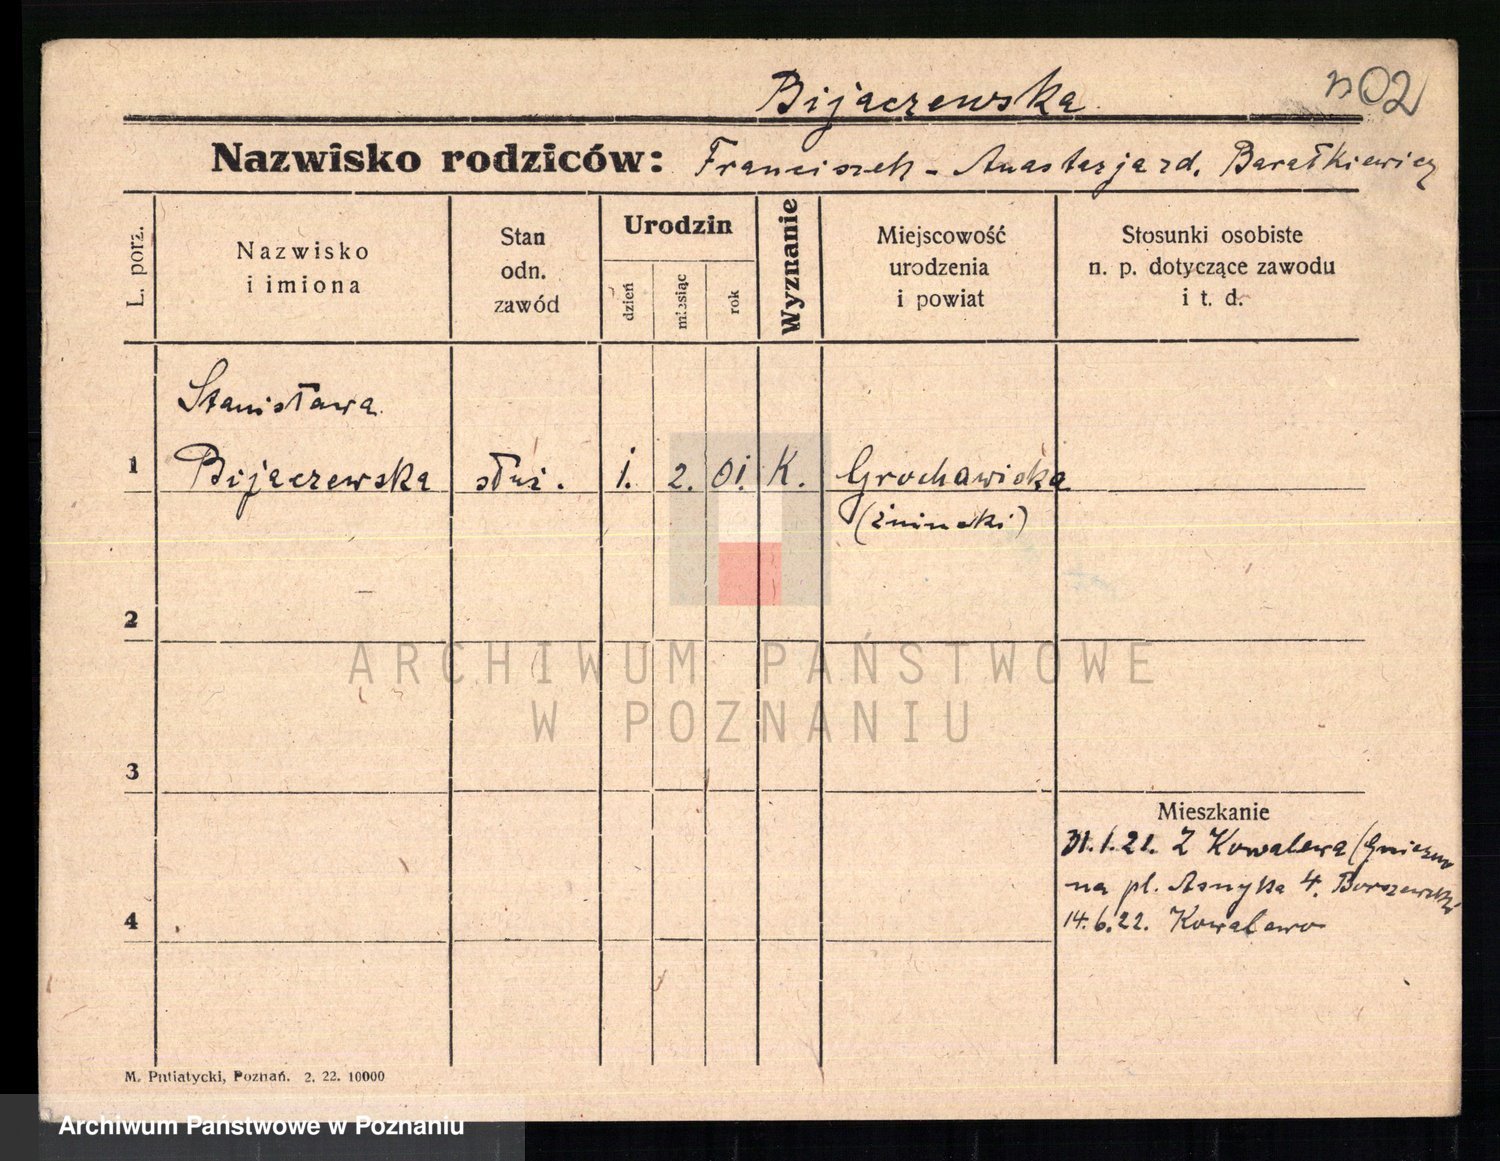 Bijaczewska
n02
Nazwisko rodziców: Franciszek - Anastazja rd. Barałkiewicz
L. porz.
Nazwisko
i imiona
Stan
odn.
zawód
Urodzin
dzień
miesiąc
rok
Wyznanie
Miejscowość
urodzenia
i powiat
Stosunki osobiste
n. p. dotyczące zawodu
i t. d.
Stanisława
1 Bijaczewska służ. 1. 2. 01. K. Grochowiska
(żniński)
2
ARCHIWUM PAŃSTWOWE
W POZNANIU
3
Mieszkanie
31.1.21. Z Kowalewa (Gniezno
na pl. Asnyka 4. Borszewski
4 14.6.22. Kowalewo
M. Putiatycki, Poznań. 2. 22. 10000
Archiwum Państwowe w Poznaniu